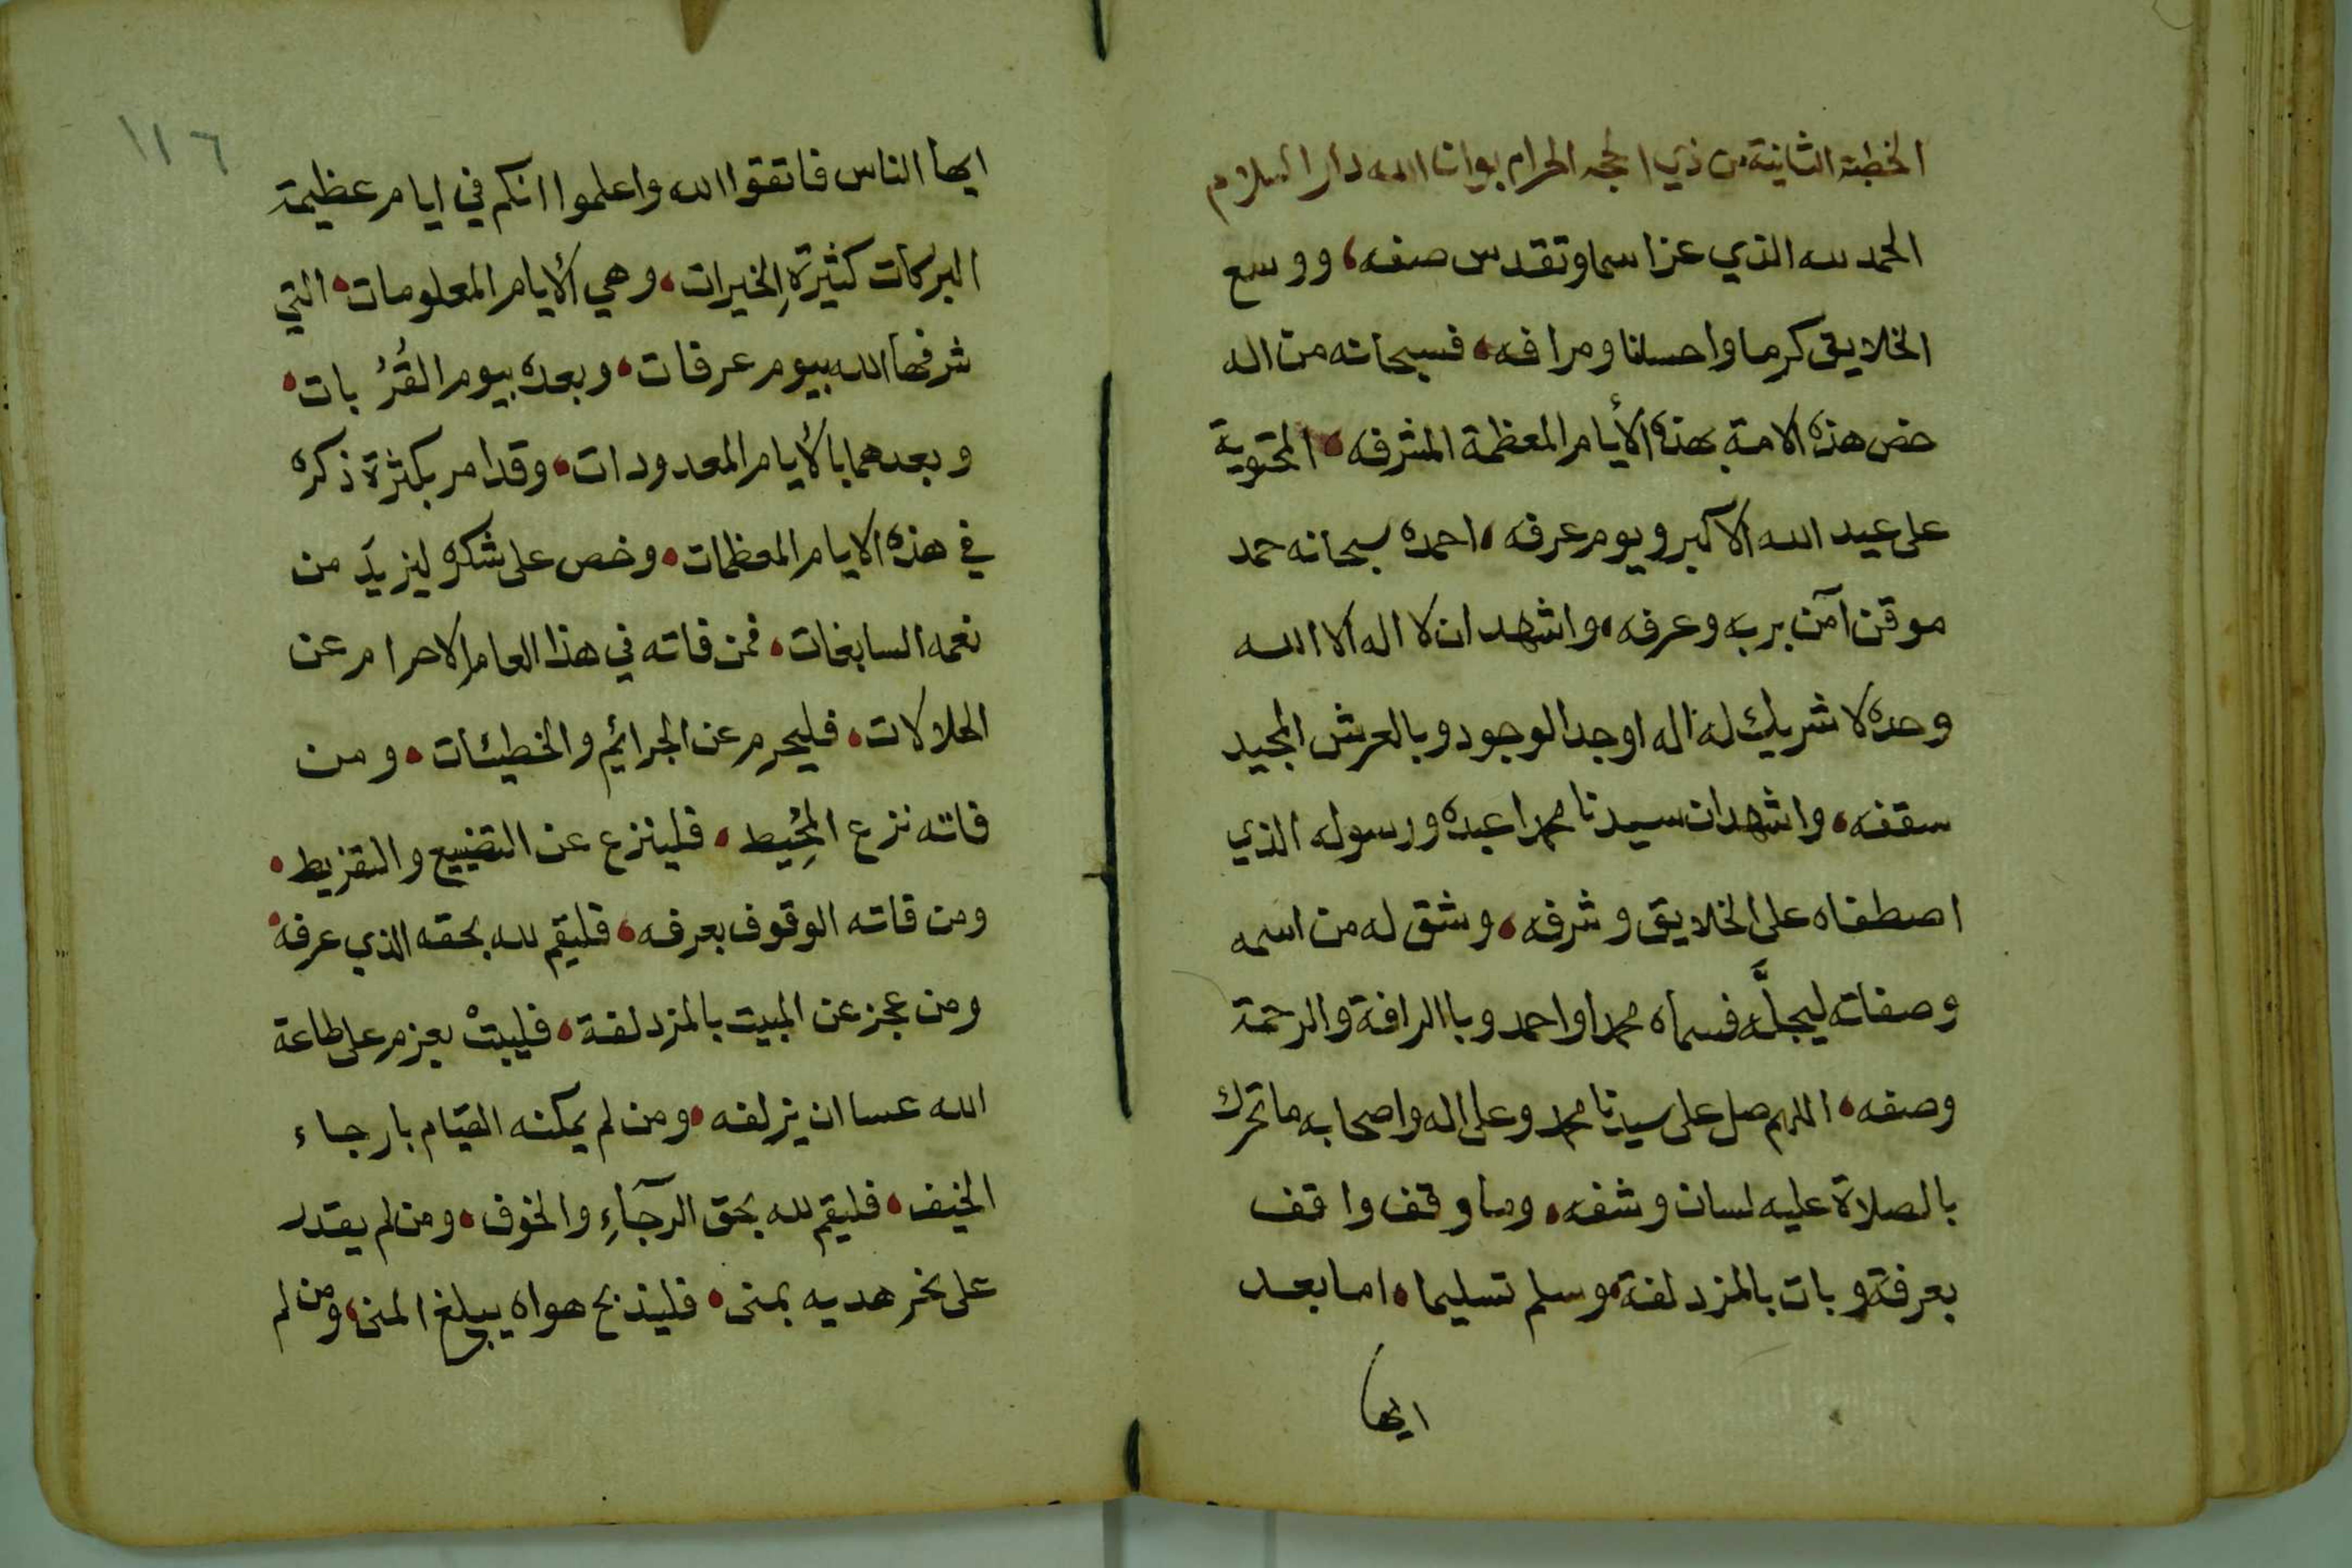 الخطبة الثانية من ذي الحجه الحرام بوانا الله دار السلام
الحمد لله الذي عز اسما وتقدس صفه، ووسع
الخلايق كرما واحسانا ومرافه، فسبحانه من اله
خص هذه الامة بهذه الأيام المعظمة المشرفه، المحتوية
على عيد الله الاكبر ويوم عرفه، احمده سبحانه حمد
موقن آمن بربه وعرفه، واشهد ان لا اله الا الله
وحده لا شريك له اله اوجد الوجود وبالعرش المجيد
سقفه، واشهد ان سيدنا محمدا عبده ورسوله الذي
اصطفاه على الخلايق وشرفه، وشق له من اسمه
وصفاته ليجلَّه فسماه محمدا واحمد وباالرافة والرحمة
وصفه، اللهم صل على سيدنا محمد وعلى اله واصحابه ما تحرك
بالصلاة عليه لسان وشفه، وما وقف واقف
بعرفة وبات بالمزدلفة، وسلم تسليما، اما بعد
ايها
١١٦
ايها الناس فاتقوا الله واعلموا انكم في ايام عظيمة
البركات كثيرةِ الخيرات، وهي الأيام المعلومات، التي
شرفها الله بيوم عرفات، وبعده بيوم القُرُبات،
وبعدهما بالأيام المعدودات، وقد امر بكثرة ذكره
في هذه الايام المعظمات، وخص على شكره ليزيدَ من
نعمه السابغات، فمن فاته في هذا العام الاحرام عن
الحلالات، فليحرم عن الجرائيم والخطيئات، ومن
فاته نزع المُحِيط، فلينزع عن التضييع والتفريط،
ومن فاته الوقوف بعرفه، فليقم لله بحقه الذي عرفه،
ومن عجز عن المبيت بالمزدلفة، فليبتْ بعزم على طاعة
الله عسا ان يزلفه، ومن لم يمكنه القيام بارجاء
الخيف، فليقم لله بحق الرجآءِ والخوف، ومن لم يقدر
على نحر هديه بمنى، فليذبح هواه يبلغ المنى، ومن لم